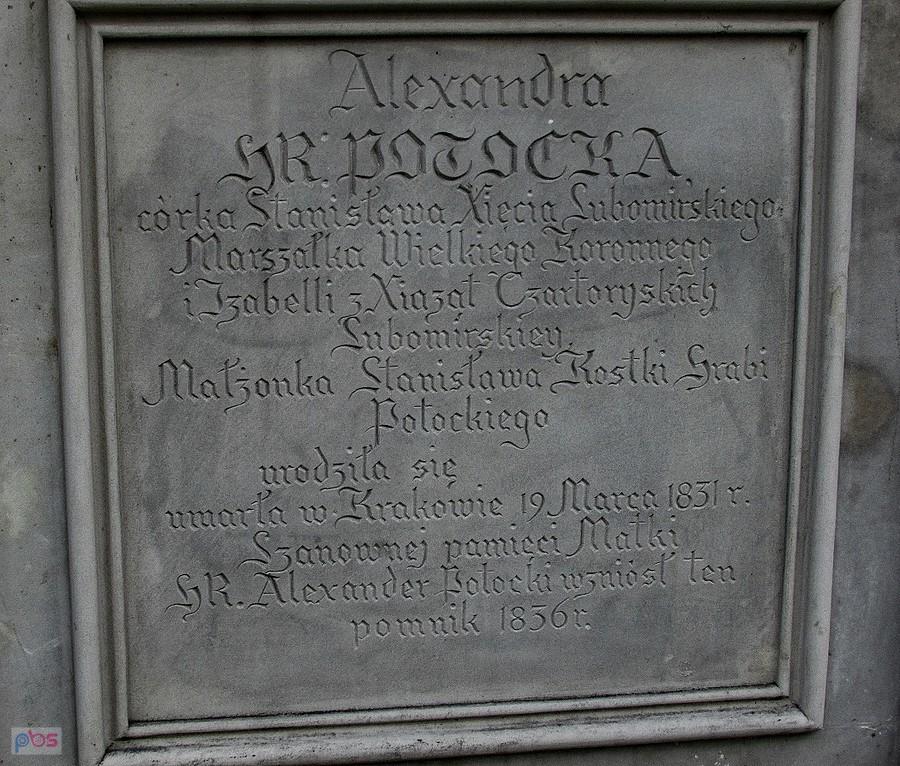 Alexandra
HR. POTOCKA,
córka Stanisława Xięcia Lubomirskiego
Marszałka Wielkiego Koronnego
i Izabelli z Xiążąt Czartoryskich
Lubomirskiey,
Małżonka Stanisława Kostki Hrabi
Potockiego
urodziła się
umarła w Krakowie 19 Marca 1831 r.
Szanownej pamięci Matki
HR. Alexander Potocki wzniósł ten
pomnik 1836 r.
pbs